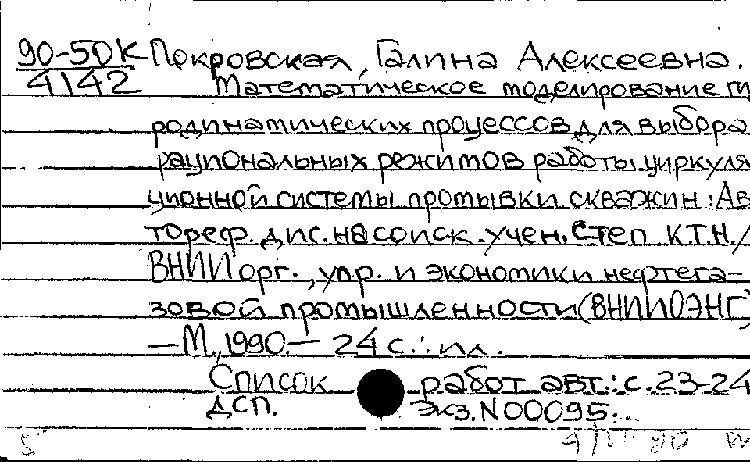 90-5DK Покровская, Галина Алексеевна.
4142 Математическое моделирование ги
родинатических процессов для выбора
рациональных режимов работы циркуля
ционной системы промывки скважин: Ав
тореф. дис. на соиск. учен. степ. к.т.н./
ВНИИ орг., упр. и экономики нефтега-
зовой промышленности (ВНИИОЭНГ)
— М., 1990. — 24 с.: ил.
Список работ авт.: с. 23-24
ДСП. Экз. N 00095.